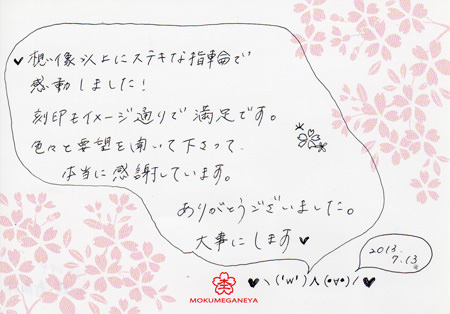 ♥想像以上にステキな指輪で
感動しました!
刻印もイメージ通りで満足です。
色々と要望を聞いて下さって、
本当に感謝しています。
ありがとうございました。
大事にします♥
2013.
7.13
♥ \('w')人(•∀•)/ ♥
MOKUMEGANEYA